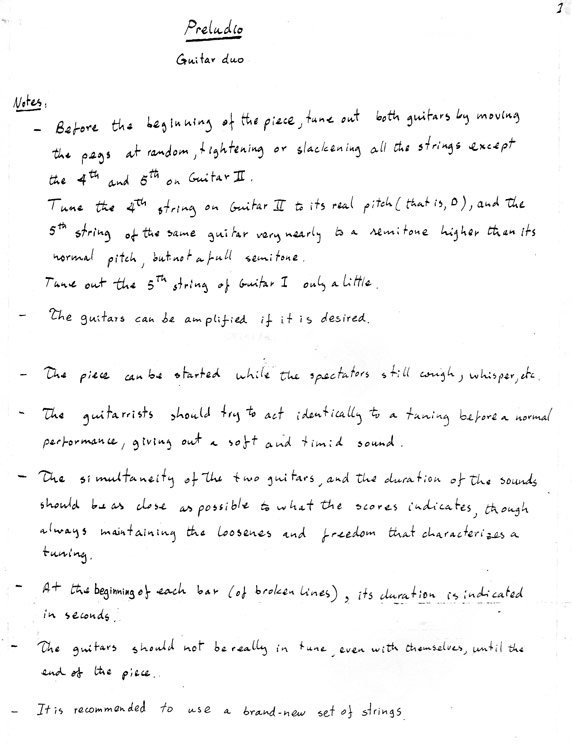 1
Preludio
Guitar duo
Notes:
- Before the beginning of the piece, tune out both guitars by moving
the pegs at random, tightening or slackening all the strings except
the 4th and 5th on Guitar II.
Tune the 4th string on Guitar II to its real pitch (that is, D), and the
5th string of the same guitar very nearly to a semitone higher than its
normal pitch, but not a full semitone.
Tune out the 5th string of Guitar I only a little.
- The guitars can be amplified if it is desired.
- The piece can be started while the spectators still cough, whisper, etc.
- The guitarrists should try to act identically to a tuning before a normal
performance, giving out a soft and timid sound.
- The simultaneity of the two guitars, and the duration of the sounds
should be as close as possible to what the scores indicates, though
always maintaining the loosenes and freedom that characterizes a
tuning.
- At the beginning of each bar (of broken lines), its duration is indicated
in seconds.
- The guitars should not be really in tune, even with themselves, until the
end of the piece.
- It is recommended to use a brand-new set of strings